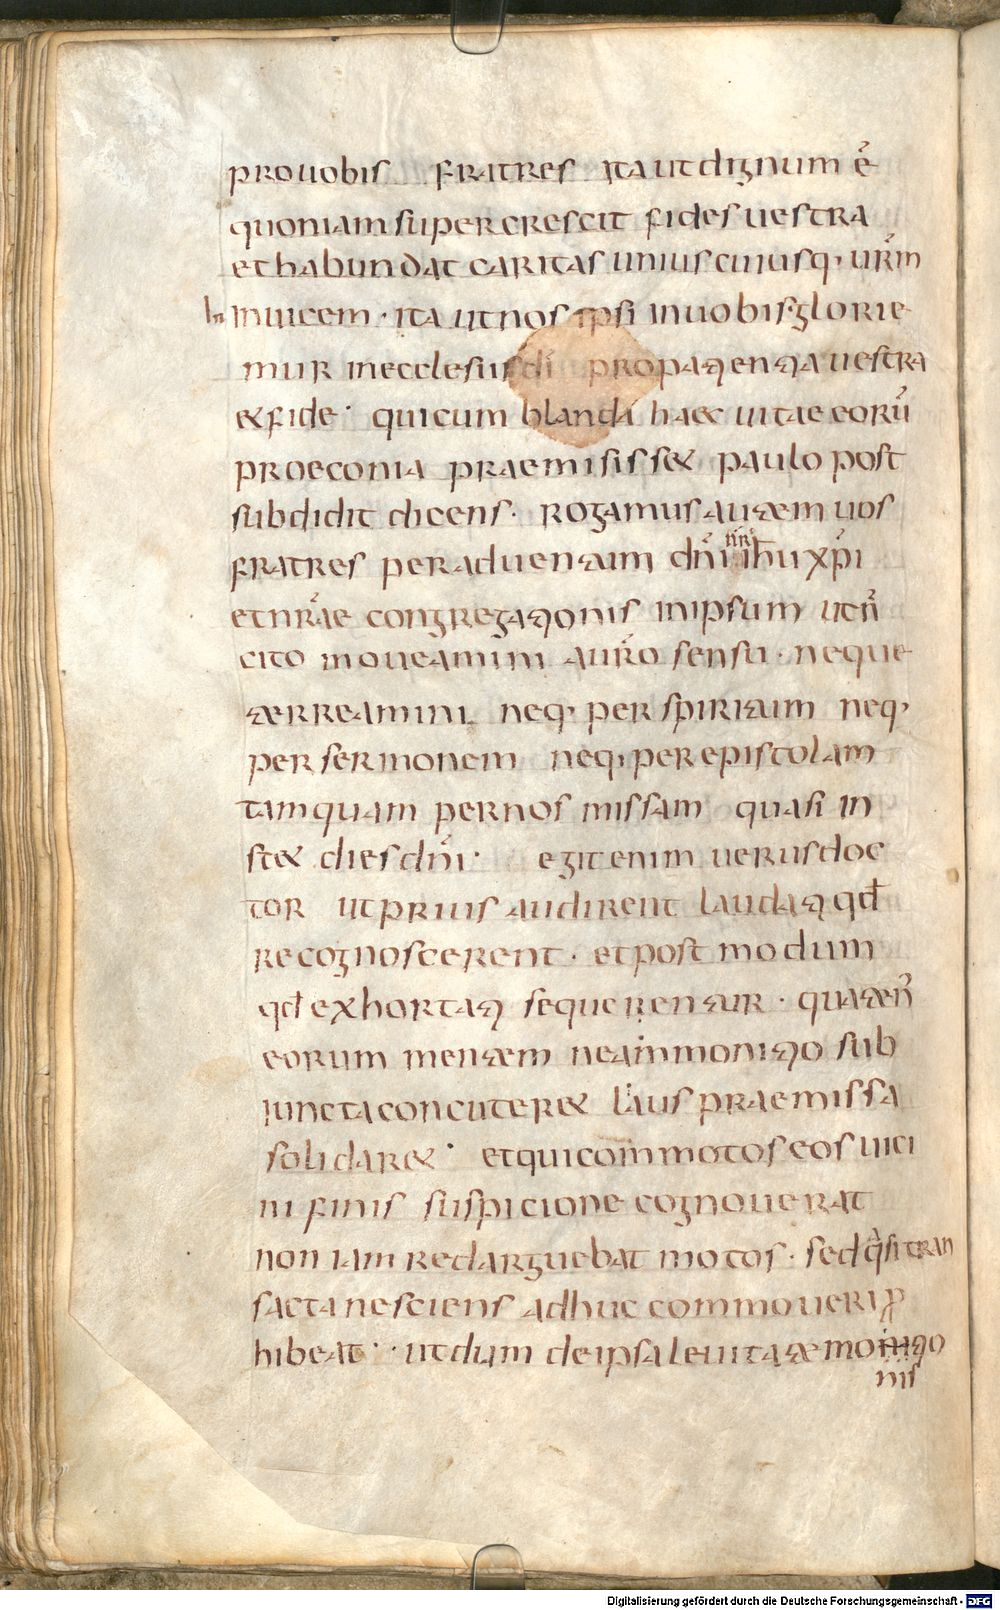 pro uobis fratres ita ut dignum ē
quoniam supercrescit fides uestra
et habundat caritas unius cuiusq; urm̄
In inuicem · ita ut nos ipsi in uobis glorie
mur in ecclesiis dī pro patientia uestra
et fide · qui cum blanda haec uitae eorū
proeconia praemisisset paulo post
subdidit dicens · rogamus autem uos
fratres per aduentum dn̄i nr̄i ih̄u xp̄i
et nr̄ae congregationis in ipsum ut n̄
cito moueamini a ur̄o sensu · neque
terreamini neq; per spiritum neq;
per sermonem neq; per epistolam
tamquam per nos missam quasi in
stet dies dn̄i · egit enim uerus doc
tor ut prius audirent laudati qđ
recognoscerent · et post modum
qđ exhortati sequerentur · quaten̄
eorum mentem ne ammonitio sub
iuncta concuteret laus praemissa
solidaret · et qui commotos eos uici
ni finis suspicione cognouerat
non iam redarguebat motos · sed q̄si tran
sacta nesciens adhuc commoueri ꝓ
hibeat · ut dum de ipsa leuitate monitio
nis
Digitalisierung gefördert durch die Deutsche Forschungsgemeinschaft - DFG